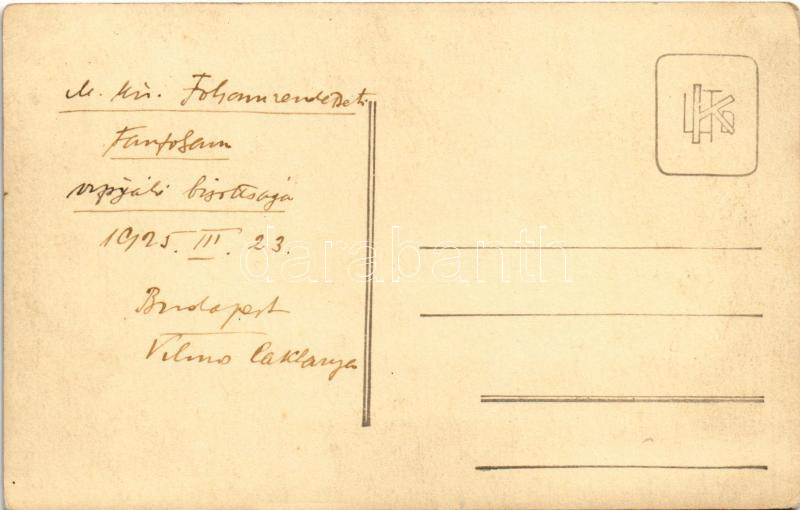 M. kir. Folyamrendezeti
Tanfolyam
vizsgáló bizottsága
1925. III. 23.
Budapest
Vilmos
darabanth